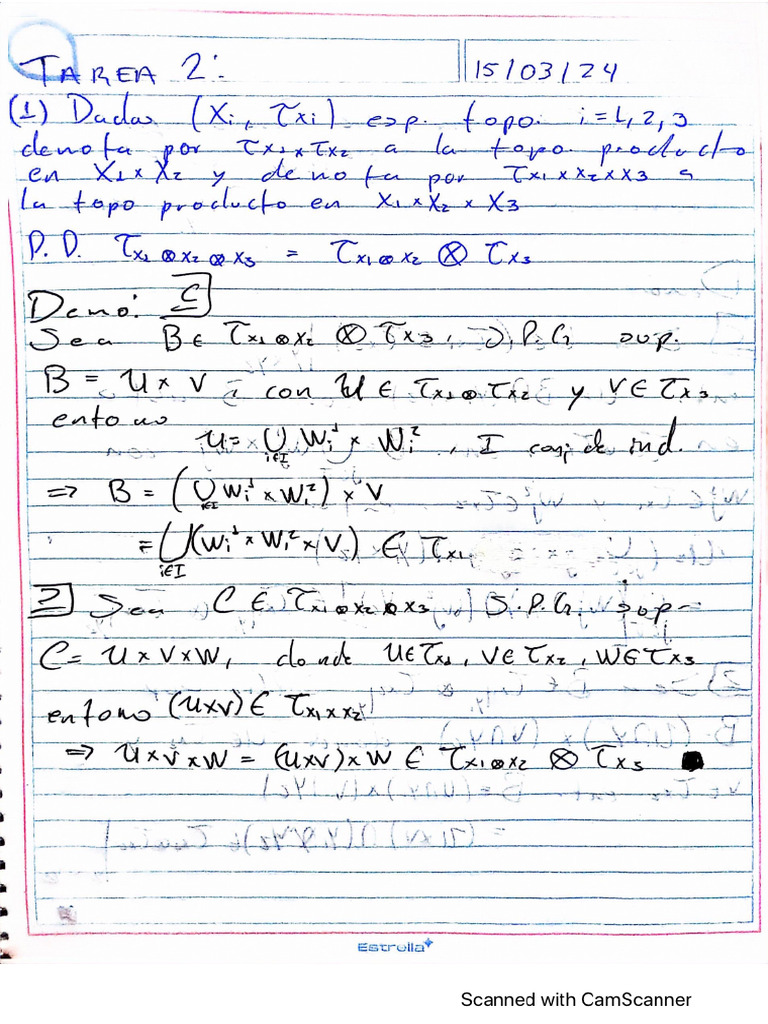 TAREA 2:
15/03/24
(1) Dadas (Xi, τxi) esp. topo. i=1,2,3
denota por τx1×τx2 a la topo producto
en X1×X2 y denota por τx1×x2×x3 a
la topo producto en X1×X2×X3
P.D. τx1⊗x2⊗x3 = τx1⊗x2 ⊗ τx3
Demo: ⊆
Sea B∈ τx1⊗x2 ⊗ τx3, S.P.G sup.
B = U×V con U∈ τx1⊗τx2 y V∈τx3
entono
U = ⋃i∈I Wi¹ × Wi², I conj de ind.
⇒ B = (⋃i∈I Wi¹×Wi²) × V
= ⋃i∈I (Wi¹×Wi²×V) ∈ τx1
⊇ Sea C∈τx1⊗x2⊗x3 S.P.G. sup-
C= U×V×W, donde U∈τx1, V∈τx2, W∈τx3
entono (U×V)∈ τx1×x2
⇒ U×V×W = (U×V)×W ∈ τx1⊗x2 ⊗ τx3 ■
Estrella
Scanned with CamScanner